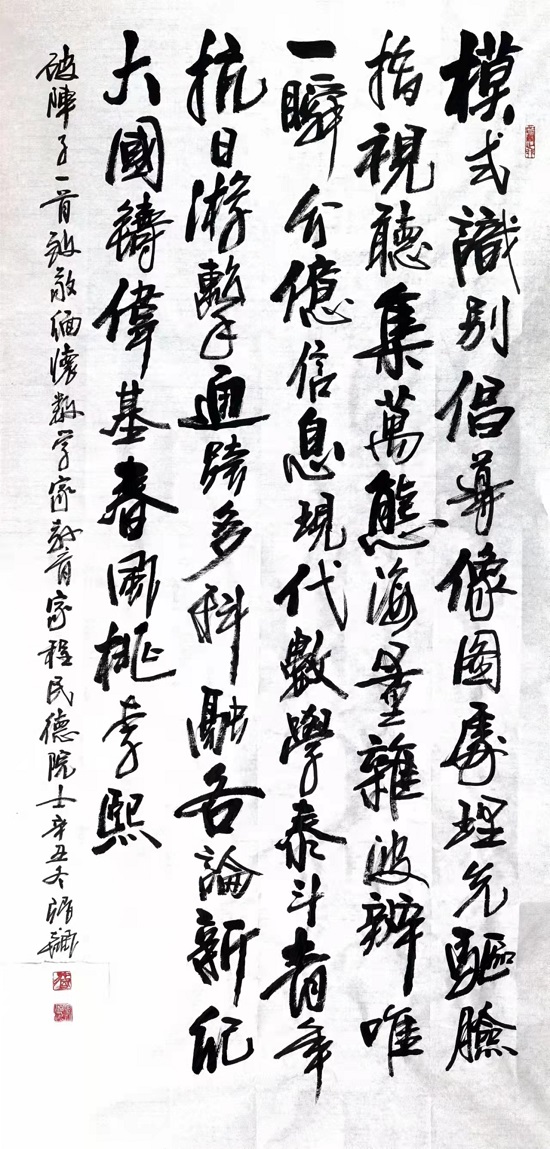 模式識别倡導像图處理先驅臉
指視聽集萬態海量雜波辨唯
一瞬分億信息現代數學泰斗青年
抗日游擊通跨多科融各論新紀
大國鑄偉基春風桃李熙
破陣子一首致敬缅懷数学家教育家程民德院士辛丑冬